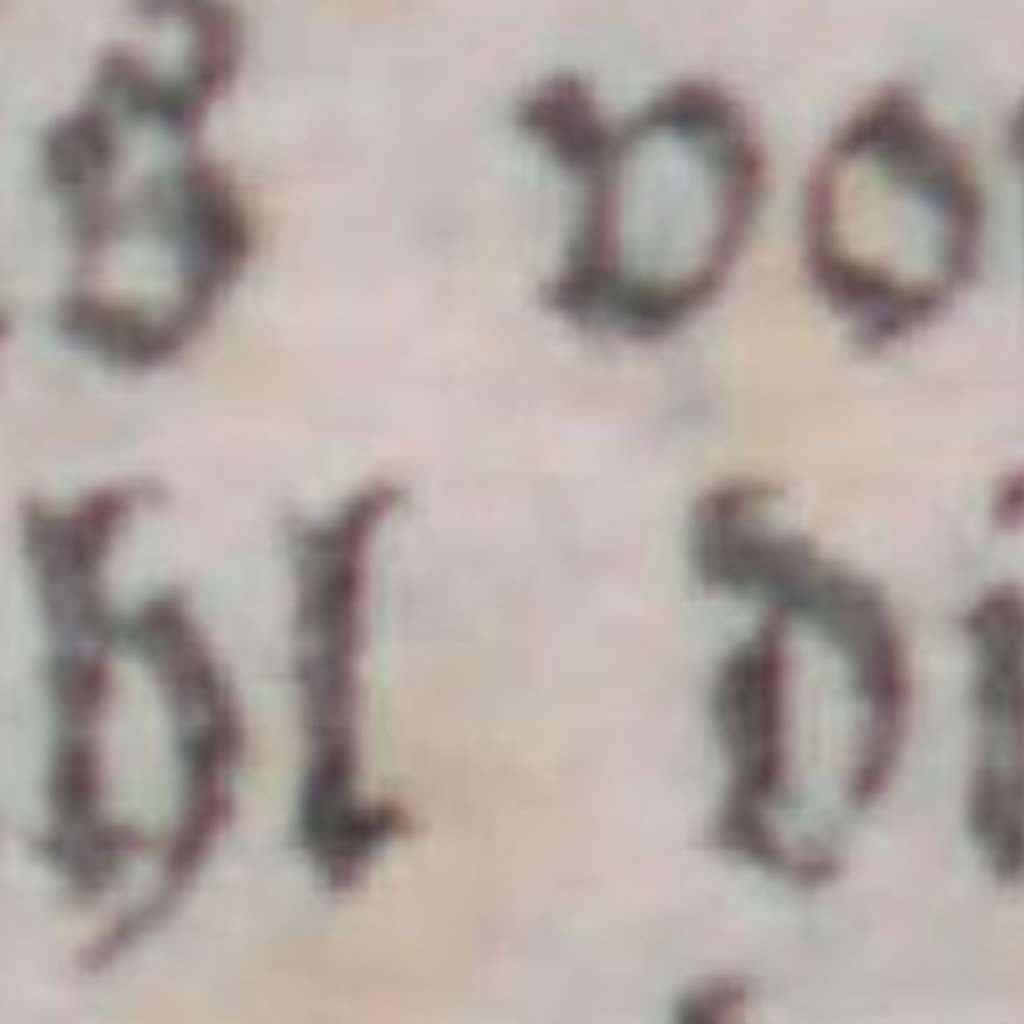 s vo
hl di